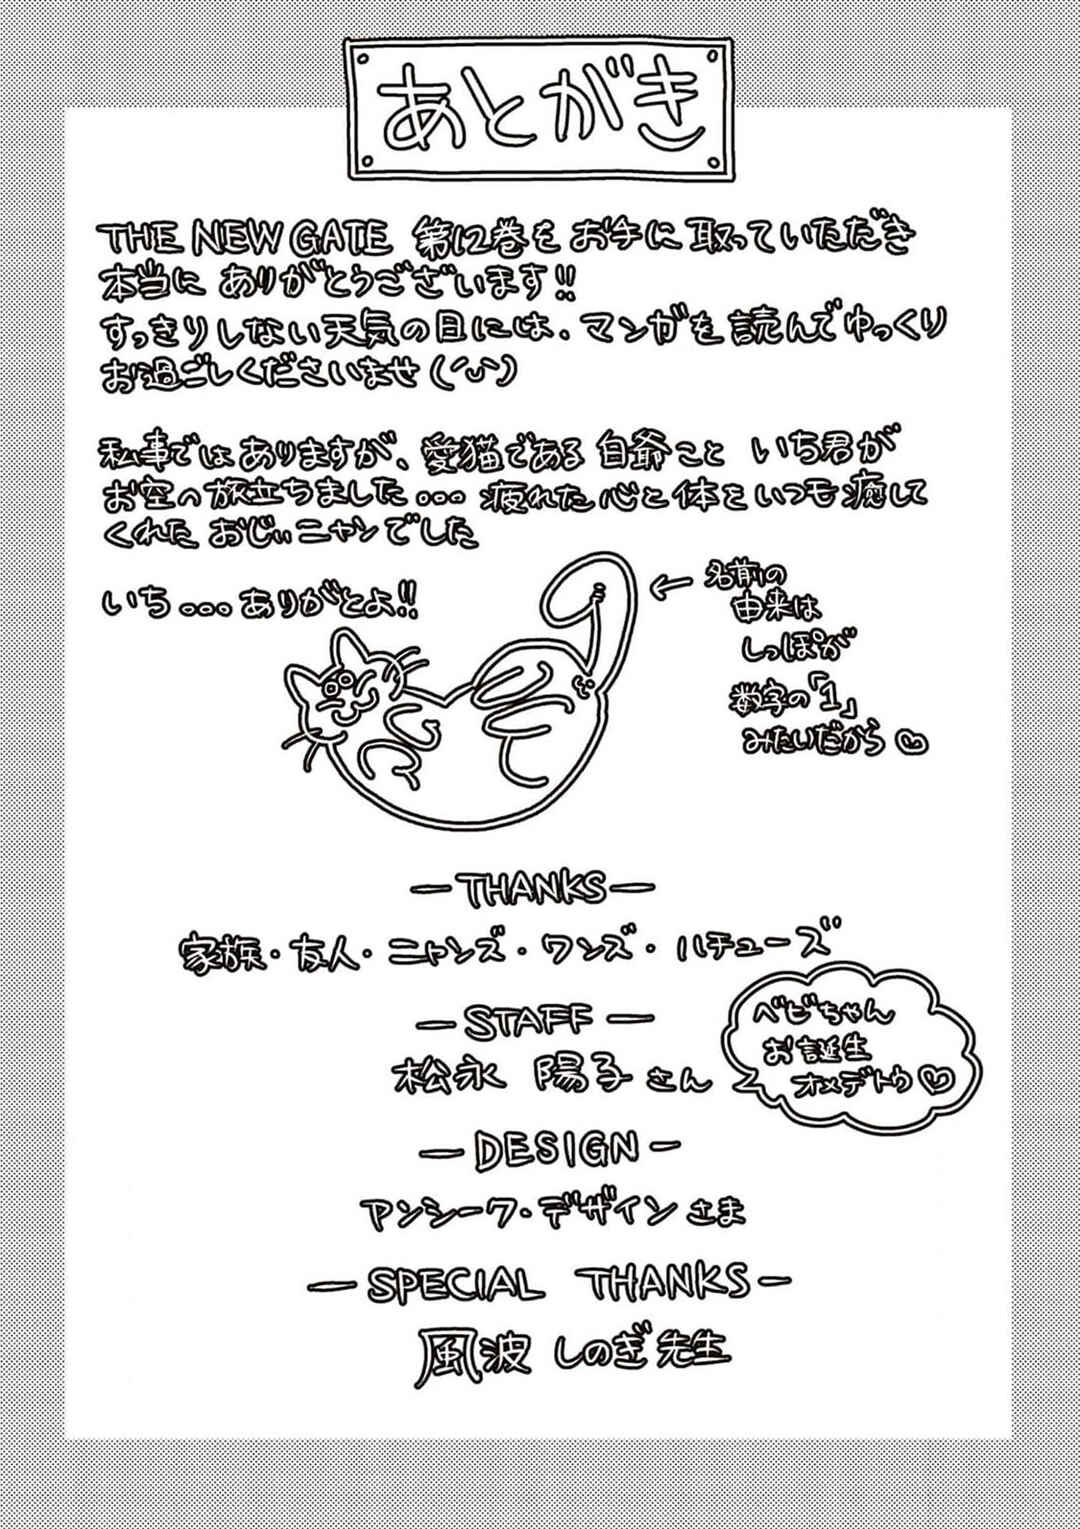 あとがき
THE NEW GATE 第12巻をお手に取っていただき
本当に ありがとうございます!!
すっきりしない天気の日には、マンガを読んでゆっくり
お過ごしくださいませ(^v^)
私事ではありますが、愛猫である 自爺こと いち君が
お空へ旅立ちました... 疲れた心と体をいつも癒して
くれた おじぃニャンでした
いち...ありがとよ!!
← 名前の
由来は
しっぽが
数字の「1」
みたいだから♡
—THANKS—
家族・友人・ニャンズ・ワンズ・ハチューズ
—STAFF—
松永 陽子さん
ベビちゃん
お誕生
オメデトウ♡
—DESIGN—
アンシーク・デザインさま
—SPECIAL THANKS—
風波 しのぎ先生